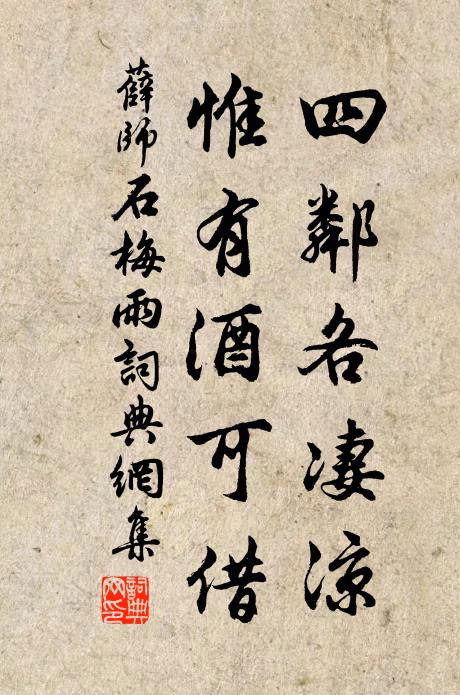 四鄰各淒涼
惟有酒可借
薛師石梅雨詞典網集
詞典網印